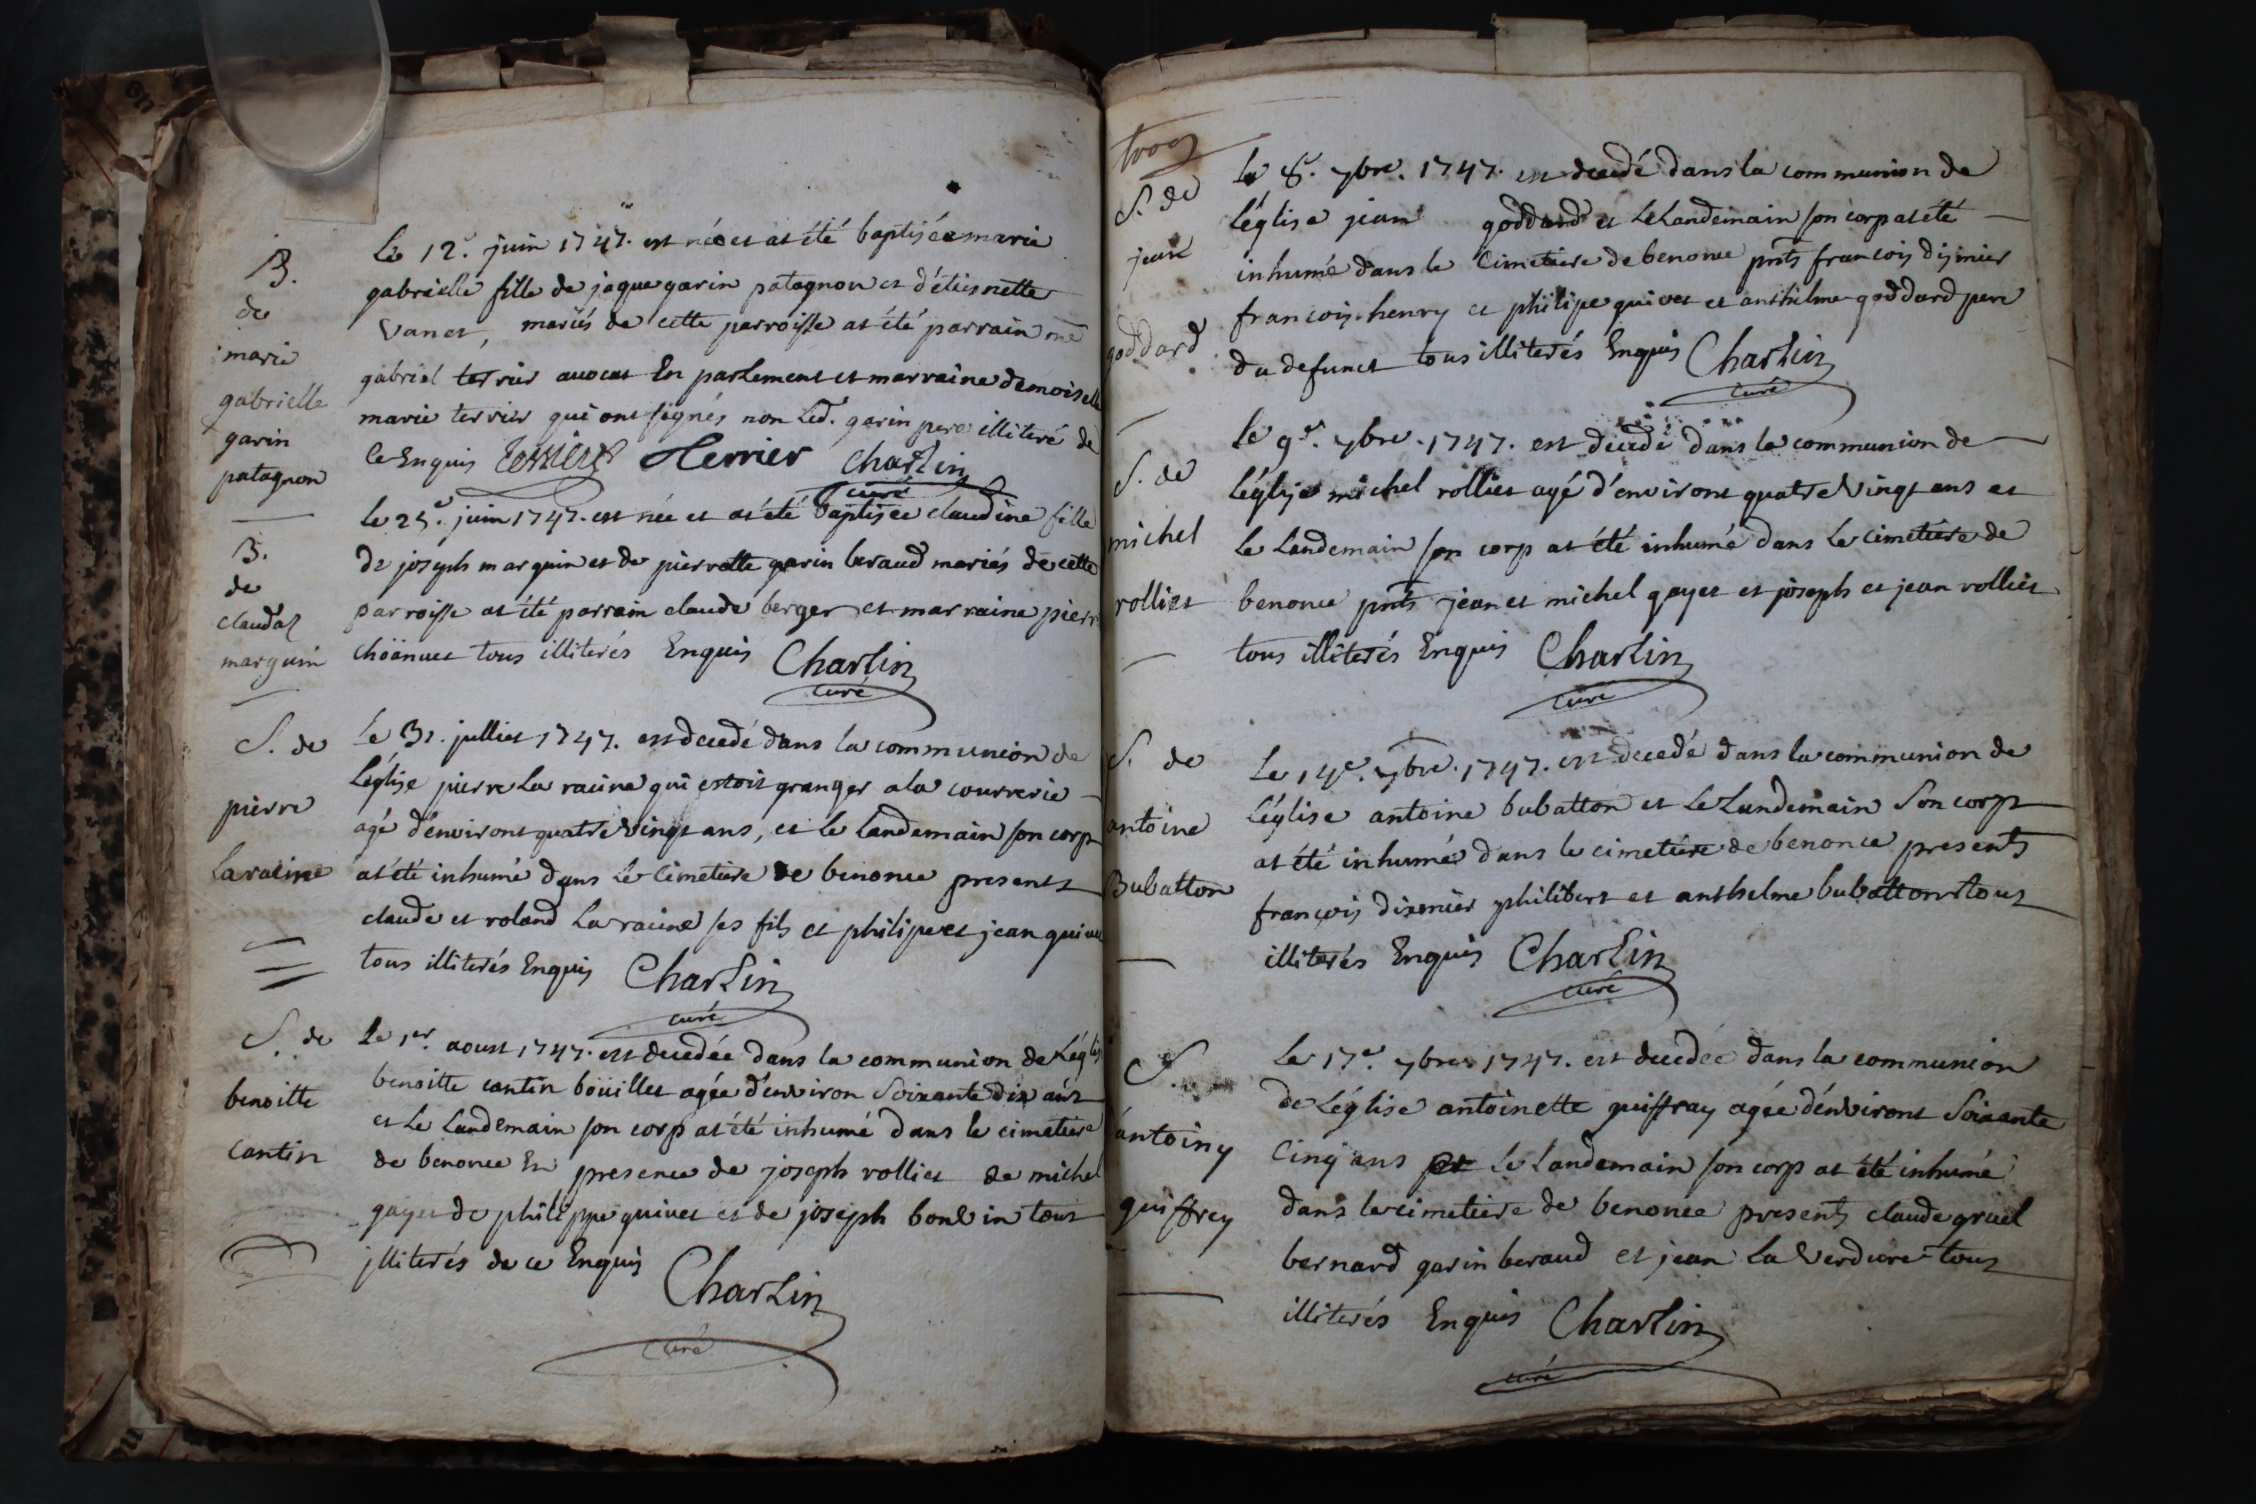 B.
de
marie
gabrielle
garin
patagnon
Le 12e. juin 1747. est née et at été baptisée marie
gabrielle fille de jaque garin patagnon et d'étiennette
vanet, mariés de cette parroisse at été parrain me
gabriel terrier avocat En parlement et marraine demoiselle
marie terrier qui ont signés non Led. garin pere illiteré de
ce Enquis terrier Terrier Charlin
curé
B.
de
marguin
Le 25e. juin 1747. est née et at été baptisée claudine fille
de joseph marguin et de pierrette garin beraud mariés de cette
parroisse at été parrain claude berger et marraine pierr
choännet tous illiterés Enquis Charlin
curé
S. de
pierre
Laracine
Le 31. julliet 1747. est decedé dans la communion de
Léglise pierre La racine qui estoit granger a la courrerie
agé d'environt quatre vingt ans, et le landemain son corp
at été inhumé dans Le cimetiere de benonce presents
claude et roland La racine ses fils et philipe et jean quivet
tous illiterés Enquis Charlin
curé
S. de
benoitte
cantin
Le 1er. aoust 1747. est decedée dans la communion de Légli
benoitte cantin boüillet agée d'environ Soixante dix ans
et Le Landemain son corp at été inhumé dans le cimetiere
de benonce En presence de joseph rolliet de michel
gayet de philippe quivet et de joseph bonvin tous
jlliterés de ce Enquis
Charlin
curé
S. de
jean
goddard
Le 8e. 7bre. 1747. est decedé dans la communion de
Léglise jean goddard et Le Landemain son corp at été
inhumé dans le Cimetiere de benonce pnts françois dijmier
françois henry et philipe quivet et anthelme goddard pere
du defunct tous illiterés Enquis Charlin
curé
S. de
michel
rolliet
Le 9e. 7bre. 1747. est decedé dans la communion de
Léglise michel rolliet agé d'environt quatre vingt ans et
Le Landemain son corp at été inhumé dans Le cimetiere de
benonce pnts jean et michel gayet et joseph et jean rolliet
tous illiterés Enquis Charlin
curé
S. de
antoine
Bubatton
Le 14e. 7bre. 1747. est decedé dans la communion de
Léglise antoine bubatton et Le Landemain Son corp
at été inhumé dans le cimetiere de benonce presents
françois dixmier philibert et anthelme bubatton tous
illiterés Enquis Charlin
curé
S.
antoiny
guiffrey
Le 17e. 7bre 1747. est decedée dans la communion
de Léglise antoinette guiffray agée d'environt Soixante
cinq ans et Le Landemain son corp at été inhumé
dans le cimetiere de benonce presents claude gruel
bernard garin beraud et jean La Verdure tous
illiterés Enquis Charlin
curé